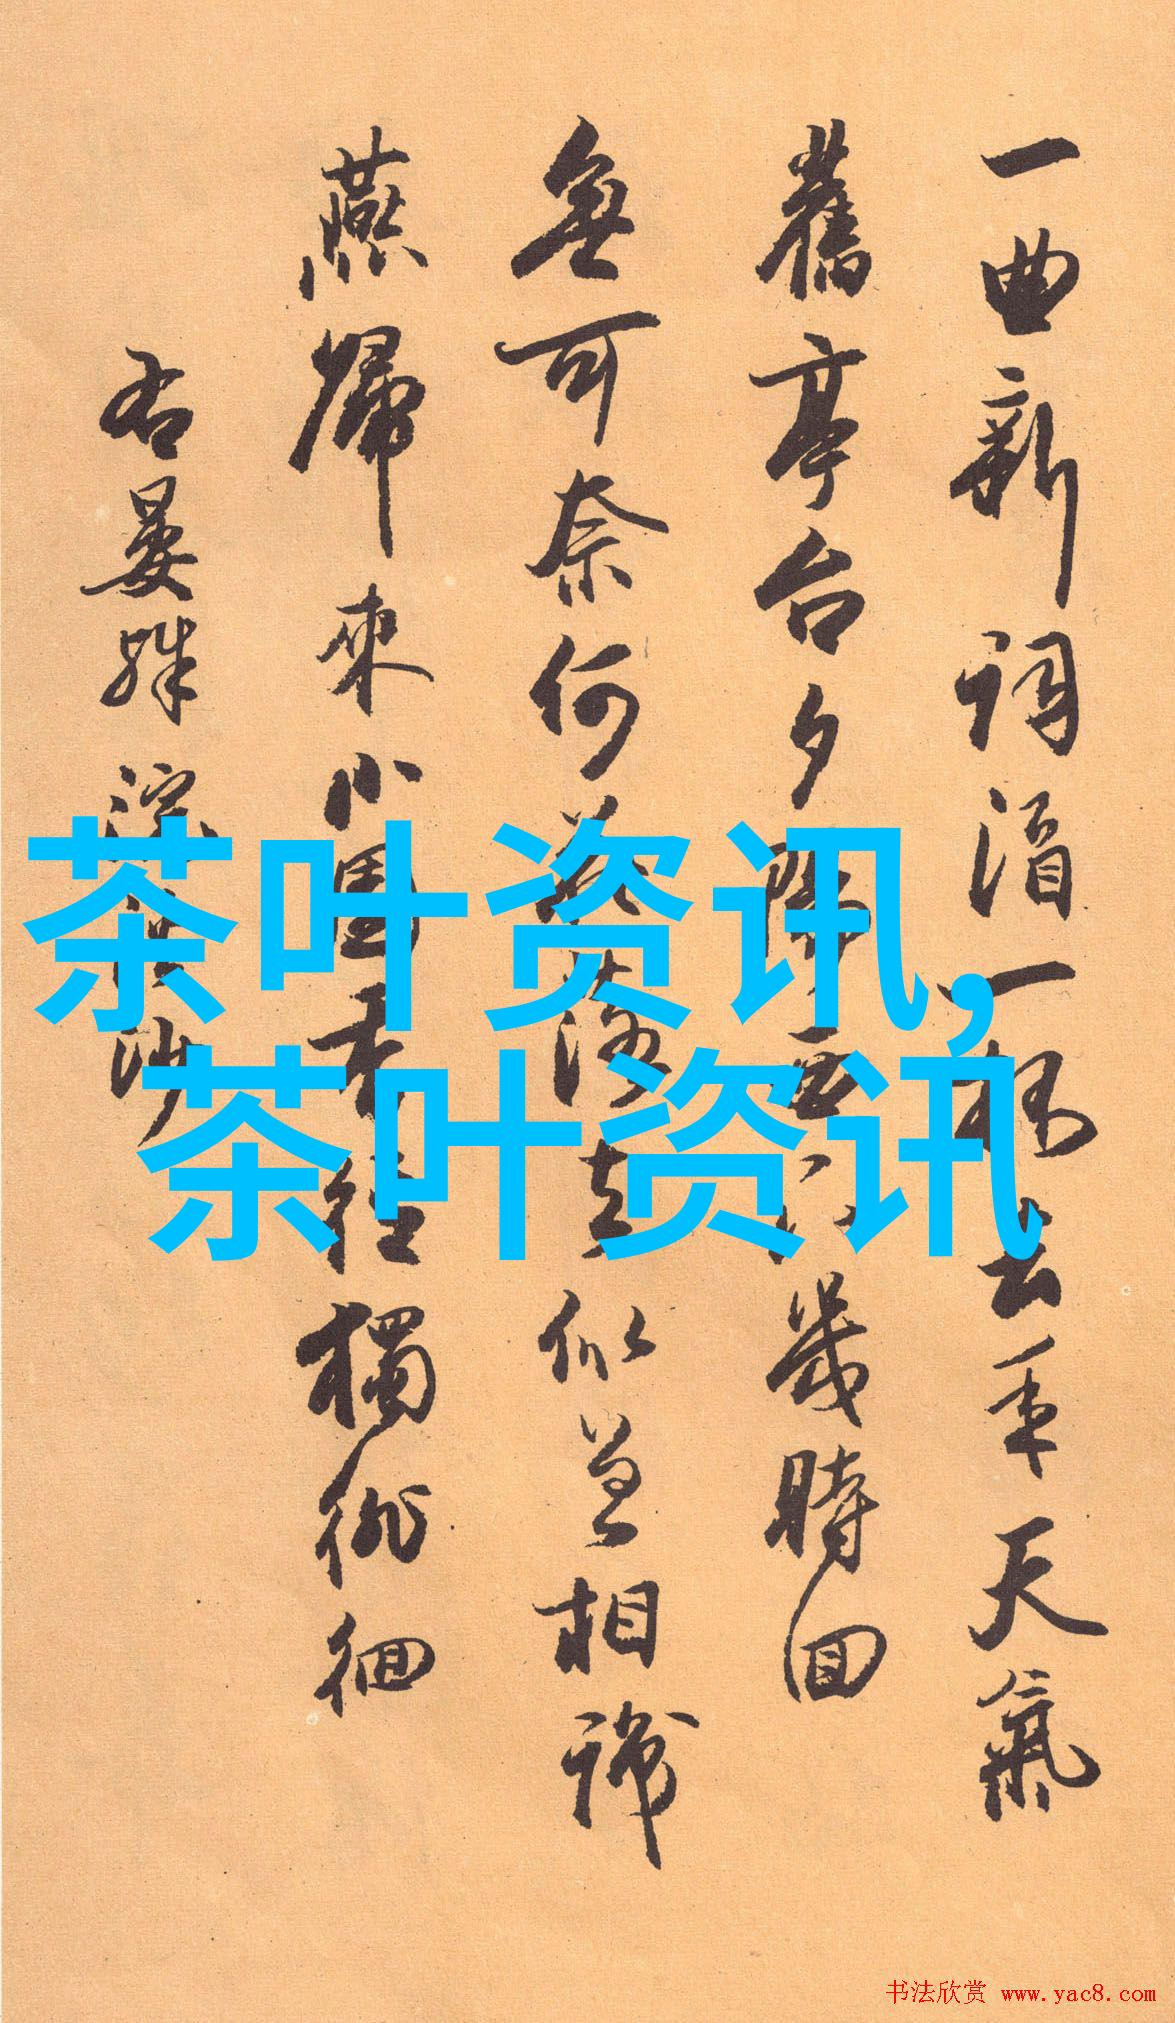 一曲新詞酒一杯去年天氣
舊亭台夕陽西下幾時回
無可奈何花落去似曾相識
燕歸來小園香徑獨徘徊
右晏殊浣溪沙
茶叶资讯,
茶叶资讯
书法欣赏 www.yac8.com